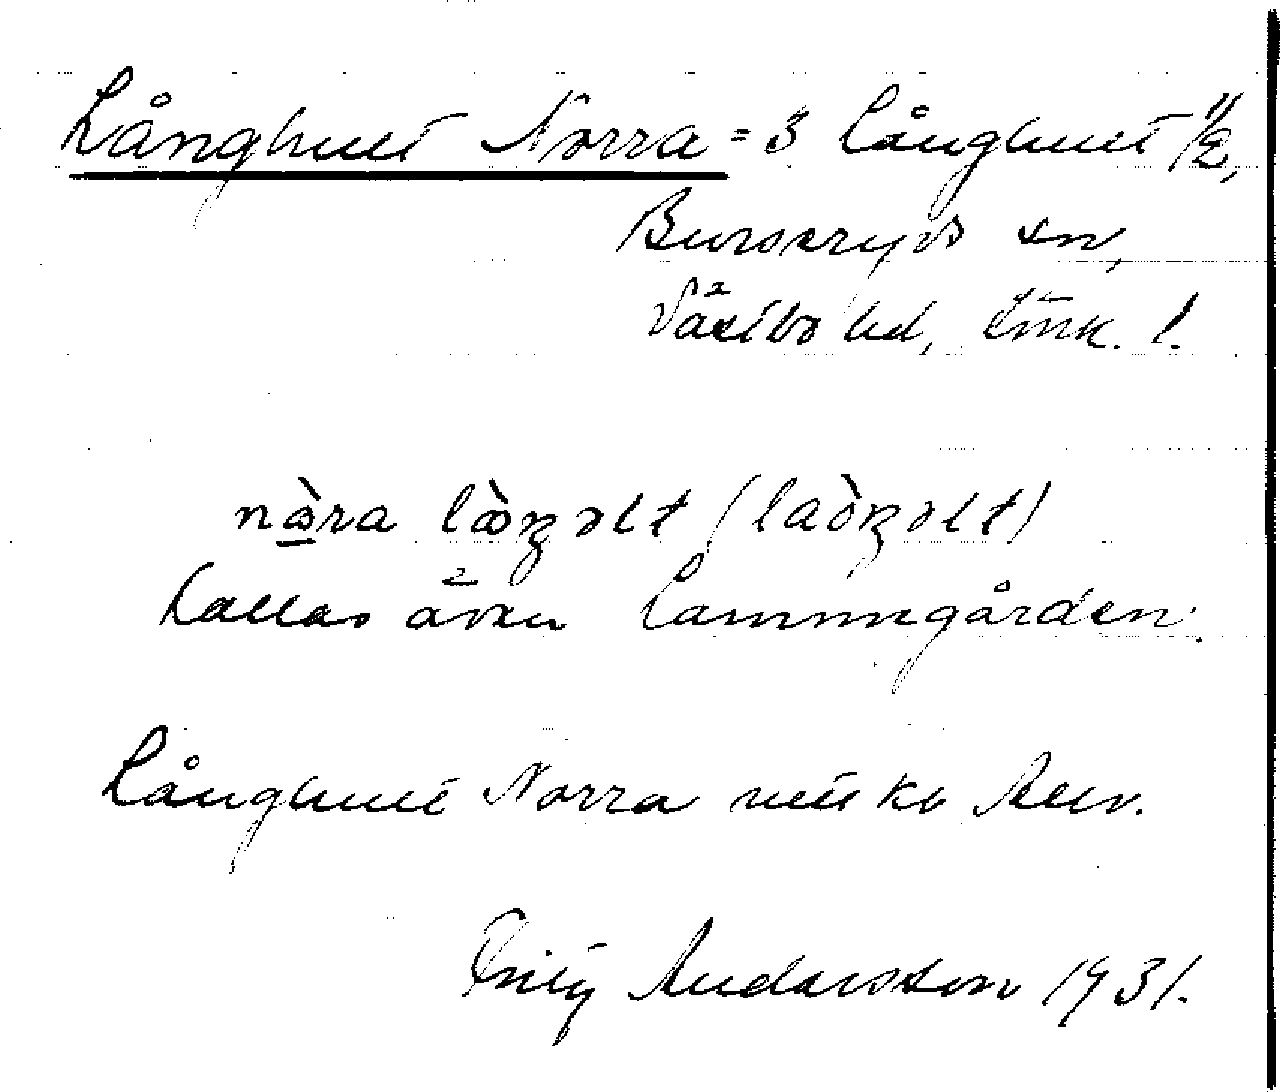 Långhult Norra = 3 Långhult 1/2,
Burseryds sn,
Västbo hd, Jönk. l.
nòra lòŋƨlt (laòŋƨlt)
kallas även Lammgården.
Långhult Norra
Andersson 1931.